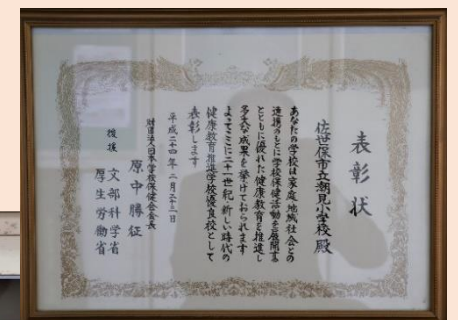 表彰状
佐世保市立潮見小学校殿
あなたの学校は家庭地域社会との
連携のもとに学校保健活動を展開する
とともに優れた健康教育を推進し
多大な成果を挙げておられます
よってここに二十一世紀・新しい時代の
健康教育推進学校優良校として
表彰します
平成二十四年二月二十三日
財団法人日本学校保健会会長
原中勝征
後援 文部科学省
厚生労働省